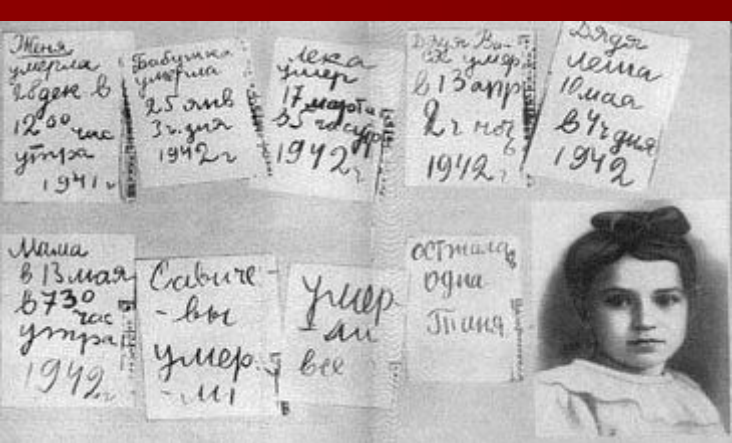 Женя
умерла
28 дек в
12 00 час
утра
1941 г
Бабушка
умерла
25 янв
3 ч. дня
1942 г
Лека
умер
17 марта
в 5 час утр
1942 г
Дядя Ва-
ся умер
в 13 апр
2 ч ноч
1942 г
Дядя
Леша
10 мая
в 4 ч дня
1942
Мама
в 13 мая
в 7 30
час
утра
1942 г
Савиче-
-вы
умер.
-ли
умер
-ли
все
осталась
одна
Таня